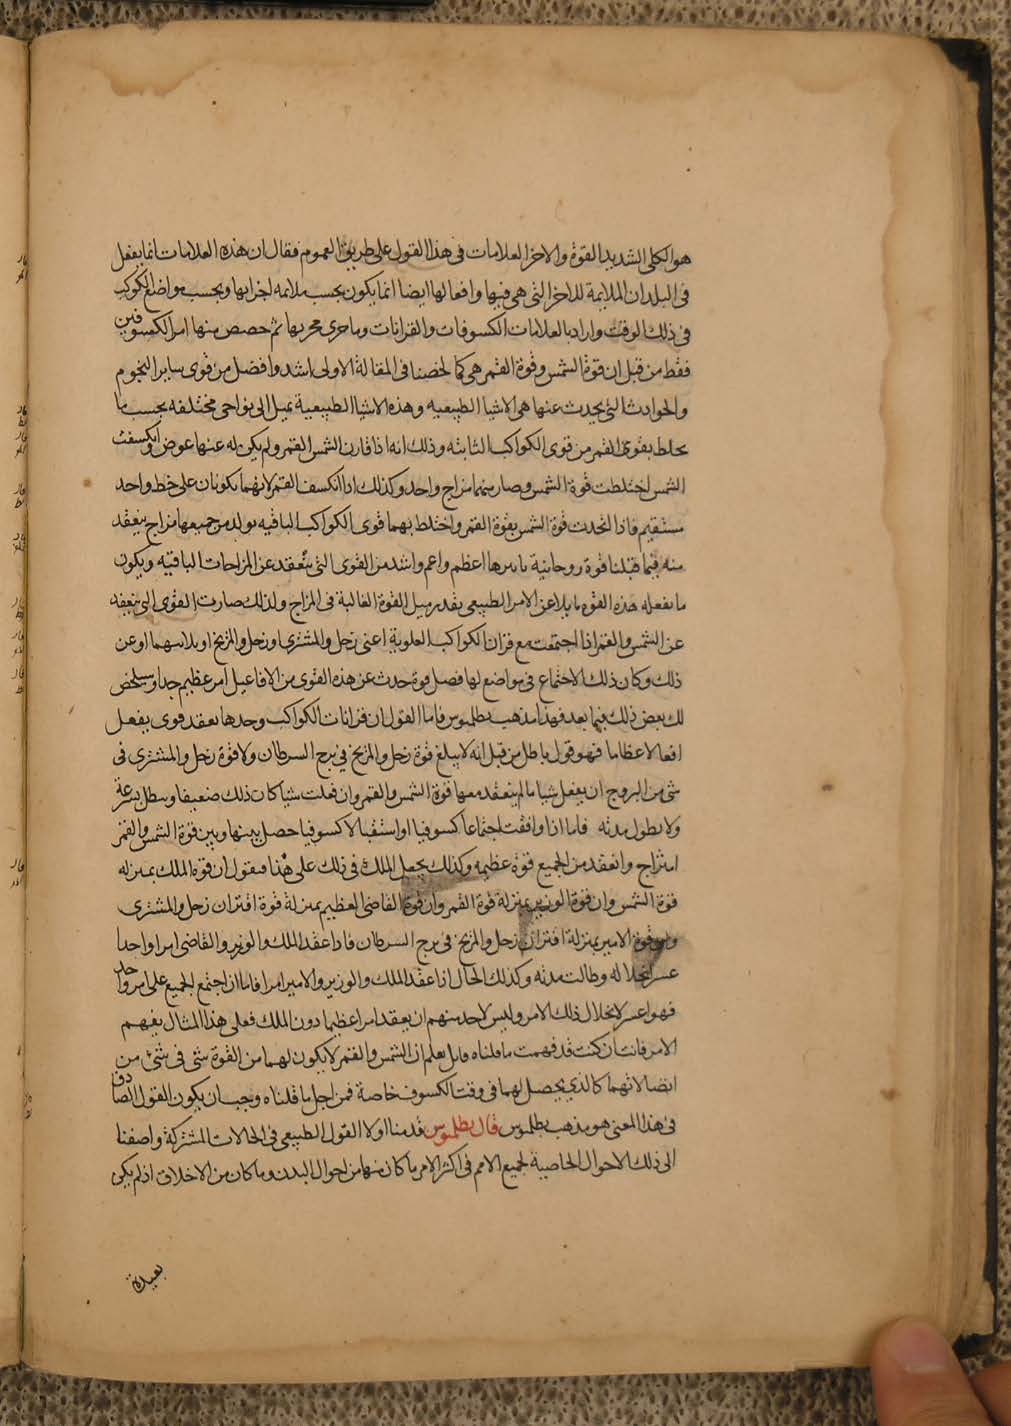 هو الكلى الشديد القوة والاخر العلامات فى هذا القول على طريق العموم فقال ان هذه العلامات انما يفعل
فى البلدان الملايمة للاخر التى هى فيها وافعالها ايضا انما يكون بحسب ملايمه اجرابها وبحسب مواضع الكوكب
فى ذلك الوقت واراد بالعلامات الكسوفات والقرانات وما جرى مجريها ثم خصص منها امر الكسوفين
فقط من قبل ان قوة الشمس وقوة القمر هى كما لخصنا فى المقالة الاولى اشد وافضل من قوى ساير النجوم
والحوادث التى يحدث عنها هى الاشيا الطبيعيه وهذه الاشيا الطبيعية تميل الى نواحى مختلفه بحسب ما
يخلط بقوى القمر من قوى الكواكب الثابته وذلك انه اذا قارن الشمس القمر ولم يكن له عنها عوض وانكسفت
الشمس اختلطت قوة الشمس وصار بينهما مزاج واحد وكذلك اذا انكسف القمر لانهما يكونان على خط واحد
مستقيم فاذا اتحدت قوة الشمس بقوة القمر واختلط بهما قوى الكواكب الباقيه تولد من جميعها مزاج ينعقد
منه فيما قبلنا قوة روحانية تاثيرها اعظم واعم واشد من القوى التى ينعقد عن المزاجات الباقيه ويكون
ما تفعله هذه القوه مايلا عن الامر الطبيعى بقدر ميل القوة الغالبة فى المزاج ولذلك صارت القوى التى ينعقد
عن الشمس والقمر اذا اجتمعت مع قران الكواكب العلوية اعنى زحل والمشترى او زحل والمريخ او بلاسهما او عن
ذلك وكان ذلك الاجتماع فى مواضع لها فصل قوة حدث عن هذه القوى من الافاعيل امر عظيم جدا وسيلخص
لك بعض ذلك فيما بعد فهذا مذهب بطلميوس فاما القول ان قرانات الكواكب وحدها يعقد قوى يفعل
افعالا عظاما فهو قول باطل من قبل انه لا يبلغ قوة زحل والمريخ فى برج السرطان ولا قوة زحل والمشترى فى
شى من البروج ان يفعل شيا ما لم ينعقد معها قوة الشمس والقمر وان فعلت شيا كان ذلك ضعيفا ويبطل بسرعة
ولا يطول مدته فاما اذا وافقت اجتماعا كسوفيا او استقبالا كسوفيا حصل بينها وبين قوة الشمس والقمر
امتزاج وانعقد من الجميع قوة عظيمه وكذلك يجعل الملك فى ذلك على هذا فيقول ان قوة الملك بمنزله
قوة الشمس وان قوة الوزير بمنزلة قوة القمر وان قوة القاضى العظيم بمنزلة قوة اقتران زحل والمشترى
وان قوة الامير بمنزلة اقتران زحل والمريخ فى برج السرطان فاذا عقد الملك والوزير والقاضى امرا واحدا
عسر انحلاله وطالت مدته وكذلك الحال اذا عقد الملك والوزير والامير امرا فاما ان اجتمع الجميع على امر واحد
فهو اعسر لانحلال ذلك الامر وليس لاحد منهم ان يعقد امرا عظيما دون الملك فعلى هذا المثال يفهم
الامر فانت ان كنت قد فهمت ما قلناه يعلم ان الشمس والقمر لا يكون لهما من القوة شى فى شئ من
ايضا لانهما كالذى يحصل لهما فى وقت الكسوف خاصة فمن اجل ما قلناه وجب ان يكون القول الصادق
فى هذا المعنى هو مذهب بطلميوس قال بطلميوس قدمنا اولا القول الطبيعى فى الحالات المشتركة واصفنا
الى ذلك الاحوال الخاصية لجميع الامم فى اكثر الامر ما كان منها من احوال البدن وما كان من الاخلاق اذ لم يكن
بعيدة